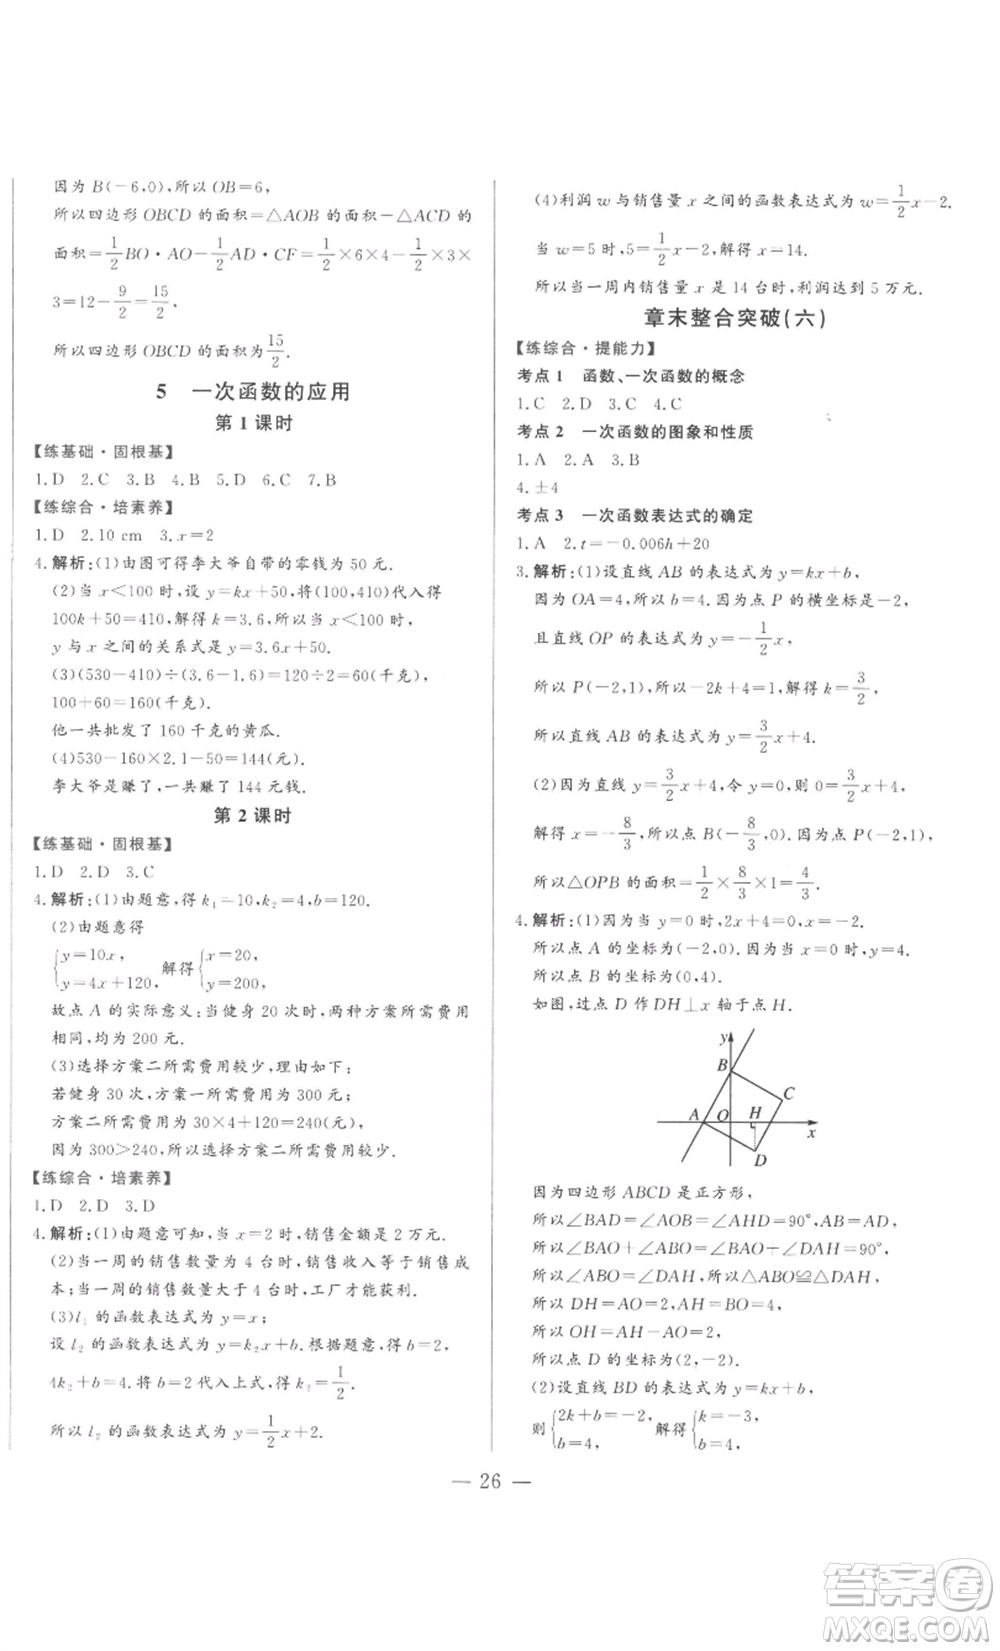 因为 B(-6,0),所以 OB=6,
所以四边形 OBCD 的面积=△AOB 的面积-△ACD 的
面积=1/2 BO·AO-1/2 AD·CF=1/2×6×4-1/2×3×
3=12-9/2=15/2,
所以四边形 OBCD 的面积为 15/2.
5 一次函数的应用
第 1 课时
【练基础·固根基】
1.D 2.C 3.B 4.B 5.D 6.C 7.B
【练综合·培素养】
1.D 2.10 cm 3.x=2
4.解析:(1)由图可得李大爷自带的零钱为 50 元.
(2)当 x<100 时,设 y=kx+50,将(100,410)代入得
100k+50=410,解得 k=3.6,所以当 x<100 时,
y 与 x 之间的关系式是 y=3.6x+50.
(3)(530-410)÷(3.6-1.6)=120÷2=60(千克),
100+60=160(千克).
他一共批发了 160 千克的黄瓜.
(4)530-160×2.1-50=144(元).
李大爷是赚了,一共赚了 144 元钱.
第 2 课时
【练基础·固根基】
1.D 2.D 3.C
4.解析:(1)由题意,得 k₁=10,k₂=4,b=120.
(2)由题意得
{y=10x, y=4x+120, 解得{x=20, y=200,
故点 A 的实际意义:当健身 20 次时,两种方案所需费用
相同,均为 200 元.
(3)选择方案二所需费用较少,理由如下:
若健身 30 次,方案一所需费用为 300 元;
方案二所需费用为 30×4+120=240(元),
因为 300>240,所以选择方案二所需费用较少.
【练综合·培素养】
1.D 2.D 3.D
4.解析:(1)由题意可知,当 x=2 时,销售金额是 2 万元.
(2)当一周的销售数量为 4 台时,销售收入等于销售成
本;当一周的销售数量大于 4 台时,工厂才能获利.
(3)l₁ 的函数表达式为 y=x;
设 l₂ 的函数表达式为 y=k₂x+b.根据题意,得 b=2,
4k₂+b=4.将 b=2 代入上式,得 k₂=1/2.
所以 l₂ 的函数表达式为 y=1/2 x+2.
(4)利润 w 与销售量 x 之间的函数表达式为 w=1/2 x-2.
当 w=5 时,5=1/2 x-2,解得 x=14.
所以当一周内销售量是 14 台时,利润达到 5 万元.
章末整合突破(六)
【练综合·提能力】
考点 1 函数、一次函数的概念
1.C 2.D 3.C 4.C
考点 2 一次函数的图象和性质
1.A 2.A 3.B
4.±4
考点 3 一次函数表达式的确定
1.A 2.t=-0.006h+20
3.解析:(1)设直线 AB 的表达式为 y=kx+b,
因为 OA=4,所以 b=4.因为点 P 的横坐标是-2,
且直线 OP 的表达式为 y=-1/2 x,
所以 P(-2,1),所以-2k+4=1,解得 k=3/2,
所以直线 AB 的表达式为 y=3/2 x+4.
(2)因为直线 y=3/2 x+4,令 y=0,则 0=3/2 x+4,
解得 x=-8/3,所以点 B(-8/3,0).因为点 P(-2,1),
所以△OPB 的面积=1/2×8/3×1=4/3.
4.解析:(1)因为当 y=0 时,2x+4=0,x=-2.
所以点 A 的坐标为(-2,0).因为当 x=0 时,y=4,
所以点 B 的坐标为(0,4).
如图,过点 D 作 DH⊥x 轴于点 H.
y
B
C
A O H
x
D
因为四边形 ABCD 是正方形,
所以∠BAD=∠AOB=∠AHD=90°,AB=AD,
所以∠BAO+∠ABO=∠BAO+∠DAH=90°,
所以∠ABO=∠DAH,所以△ABO≌△DAH,
所以 DH=AO=2,AH=BO=4,
所以 OH=AH-AO=2,
所以点 D 的坐标为(2,-2).
(2)设直线 BD 的表达式为 y=kx+b,
则{2k+b=-2, b=4, 解得{k=-3, b=4,
— 26 —
答案圈
MXQE.COM